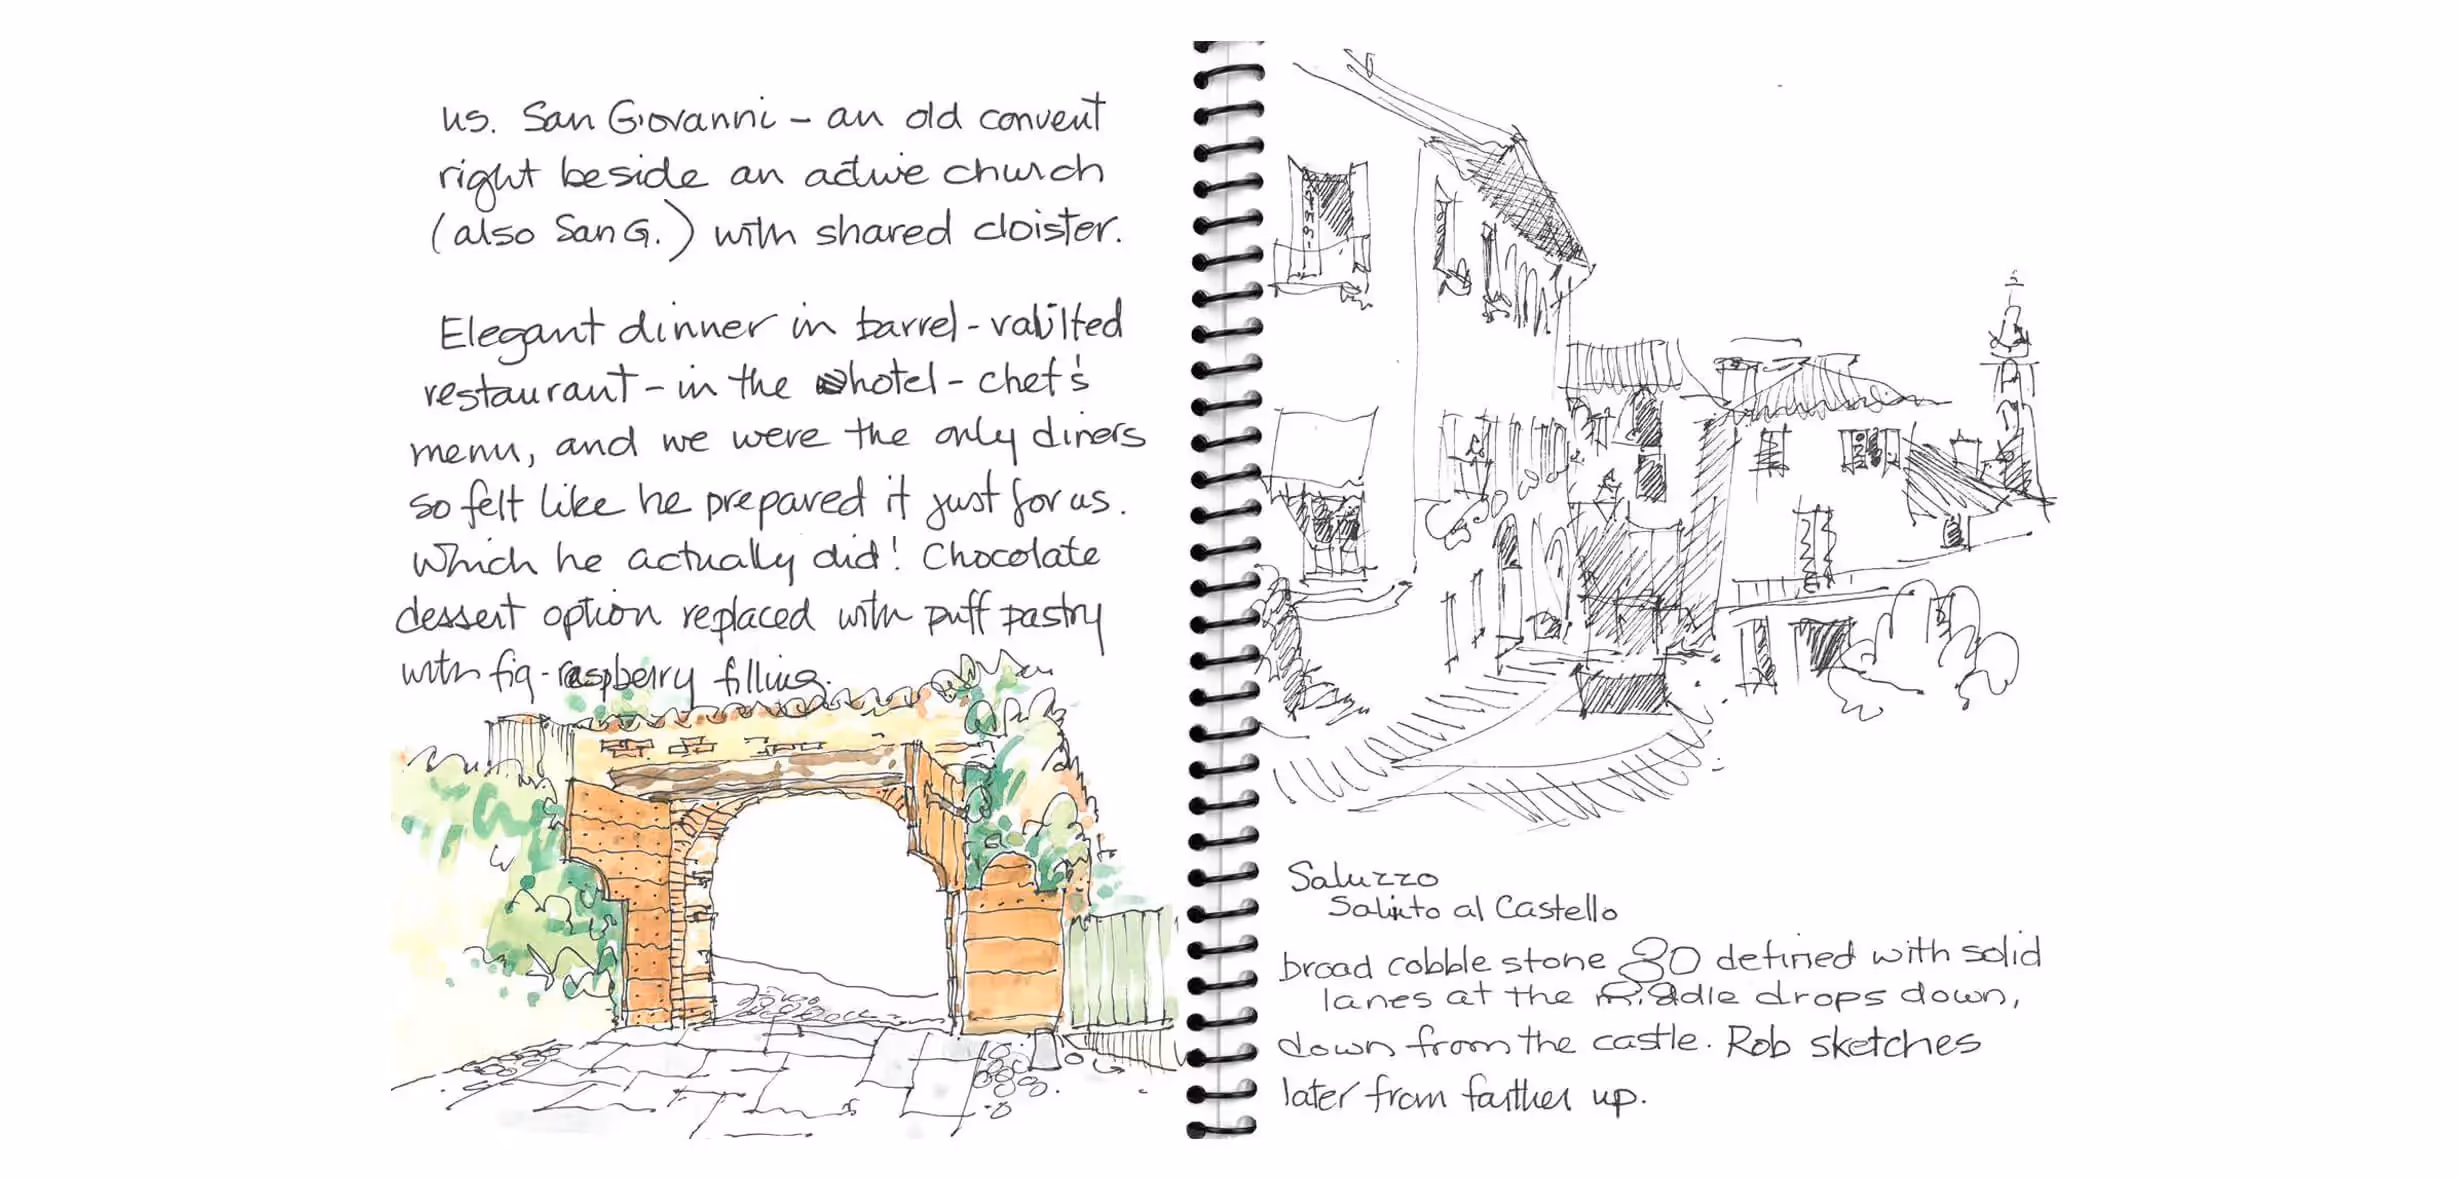 us. San Giovanni – an old convent
right beside an active church
(also San G.) with shared cloister.
Elegant dinner in barrel-vaulted
restaurant – in the hotel – chef's
menu, and we were the only diners
so felt like he prepared it just for us.
Which he actually did! Chocolate
dessert option replaced with puff pastry
with fig-raspberry filling.
Saluzzo
Salita al Castello
broad cobble stone defined with solid
lanes at the middle drops down,
down from the castle. Rob sketches
later from farther up.